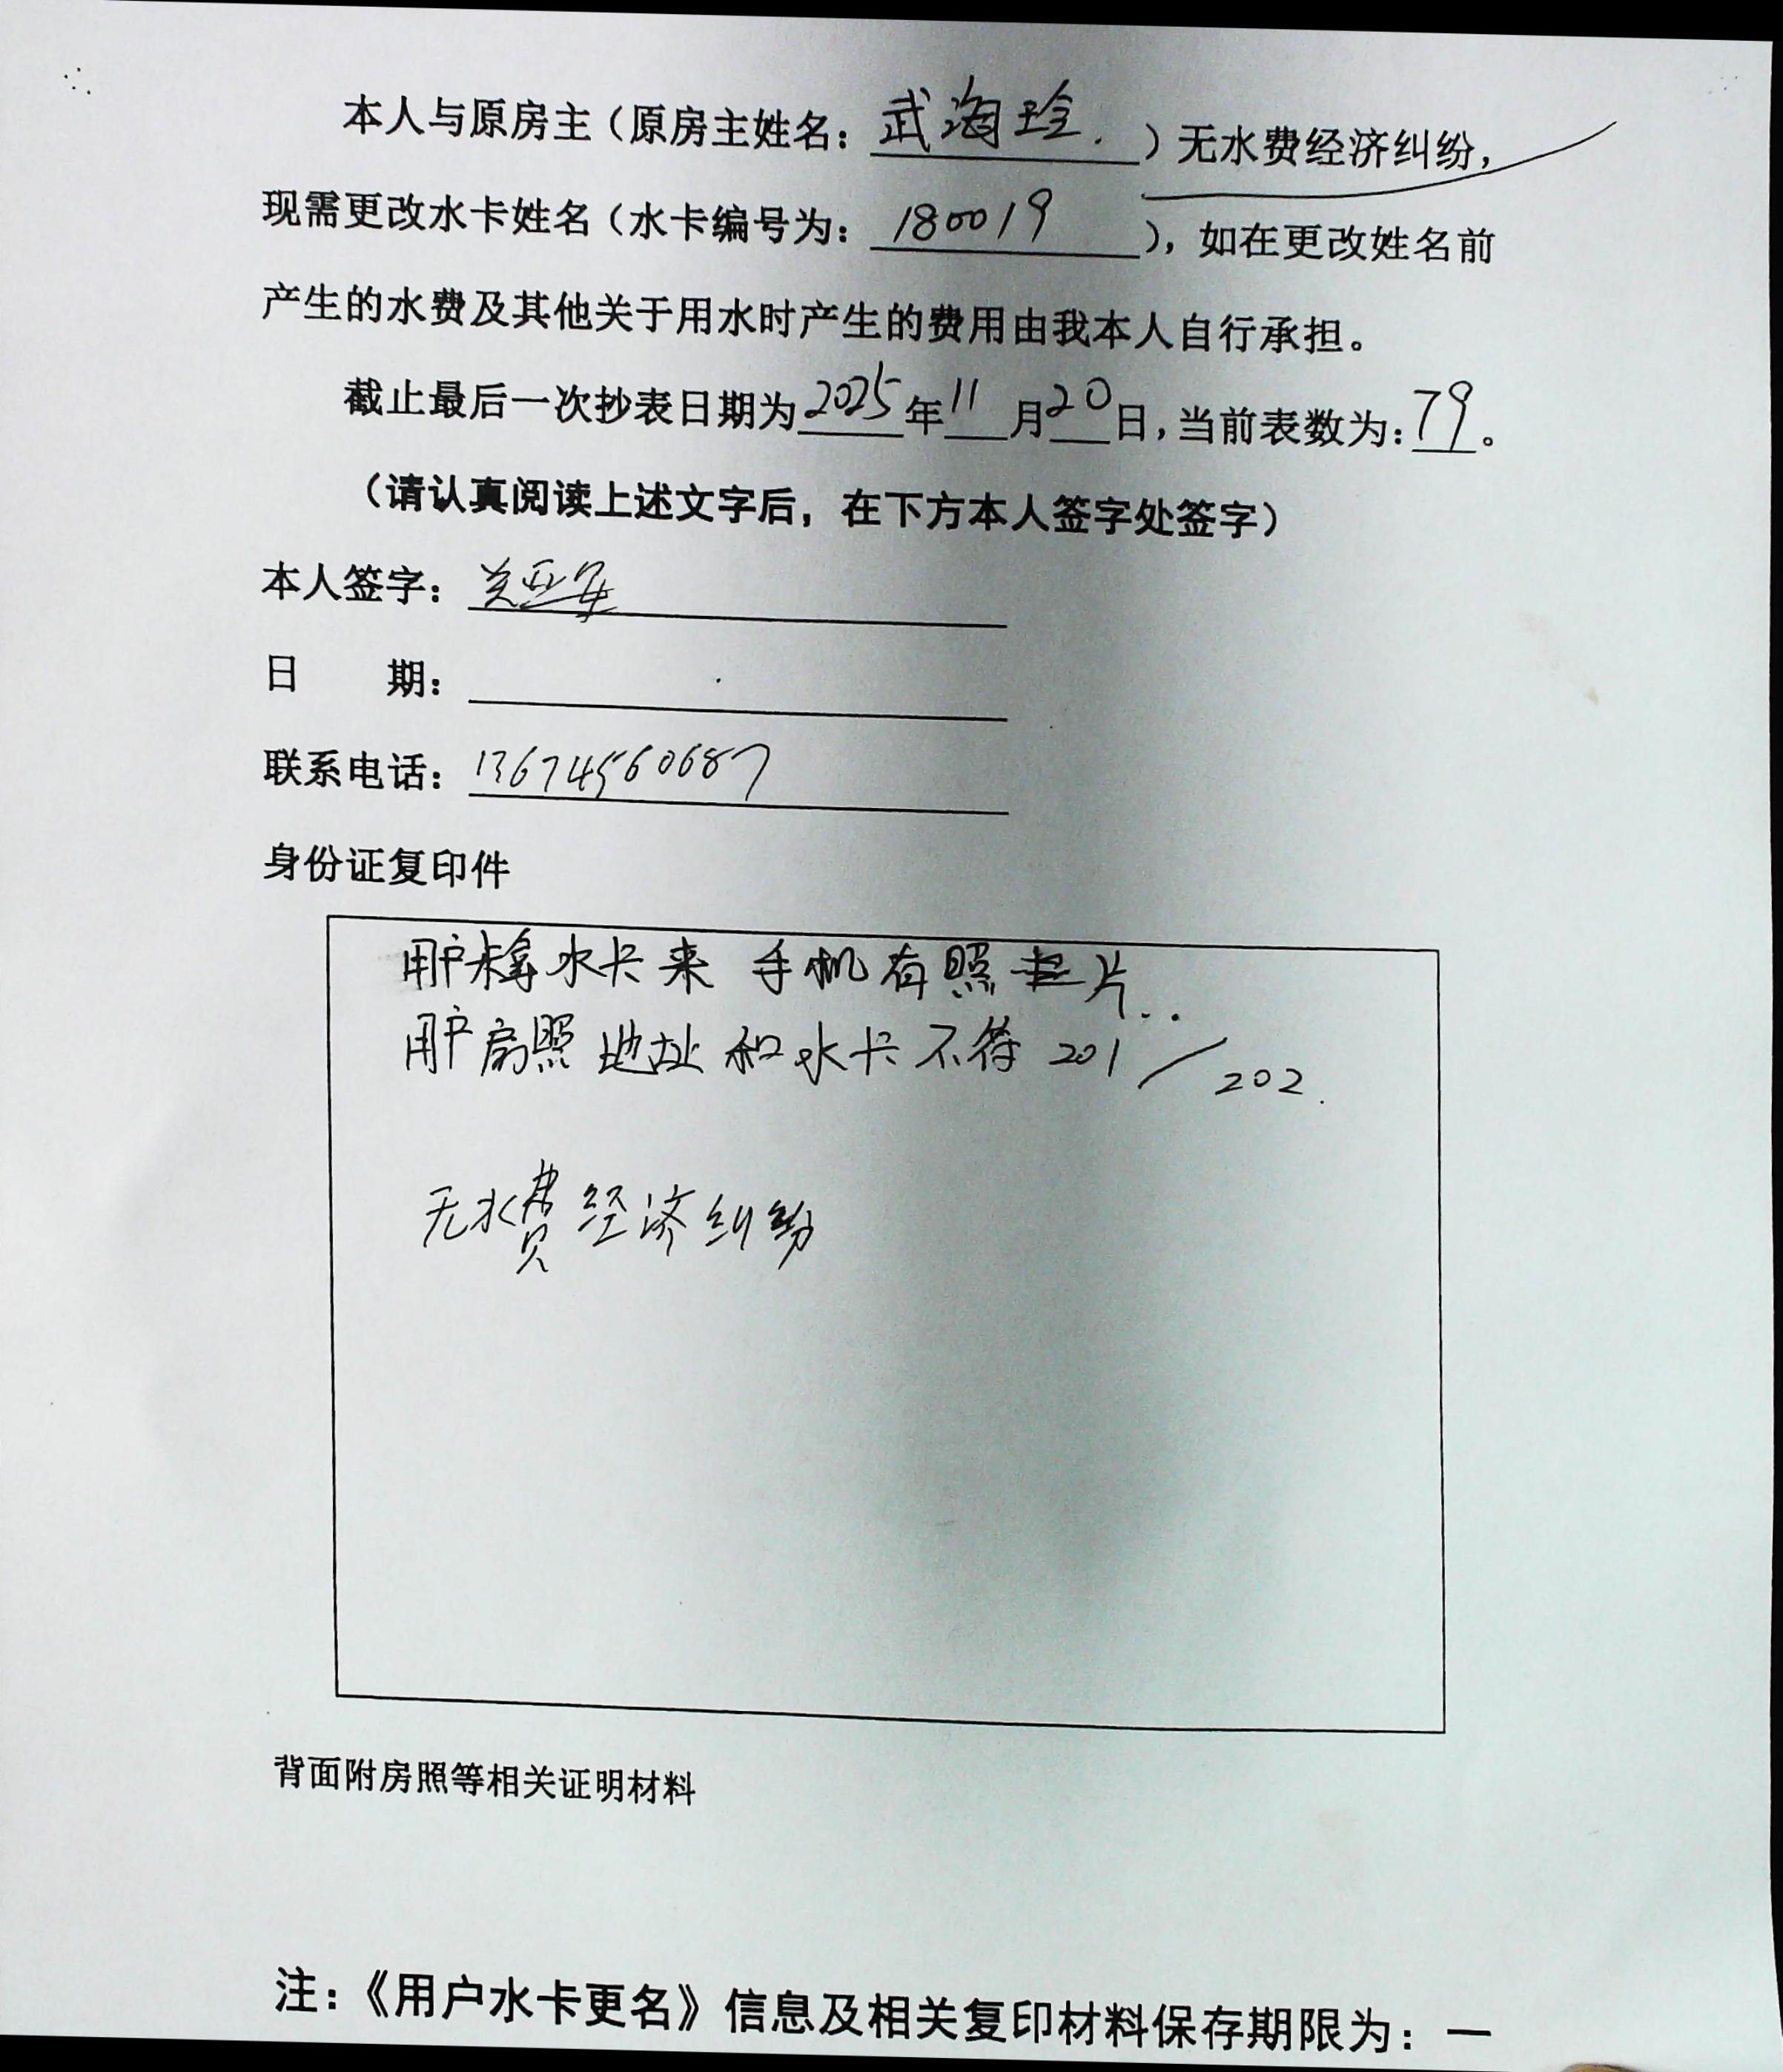 本人与原房主（原房主姓名：武海玲.）无水费经济纠纷，
现需更改水卡姓名（水卡编号为：180019），如在更改姓名前
产生的水费及其他关于用水时产生的费用由我本人自行承担。
截止最后一次抄表日期为2025年11月20日，当前表数为：79。
（请认真阅读上述文字后，在下方本人签字处签字）
本人签字：
日　　期：
联系电话：13674560687
身份证复印件
用户未拿水卡来 手机有照片..
用户房照地址和水卡不符 201/202.
无水费经济纠纷
背面附房照等相关证明材料
注：《用户水卡更名》信息及相关复印材料保存期限为：一